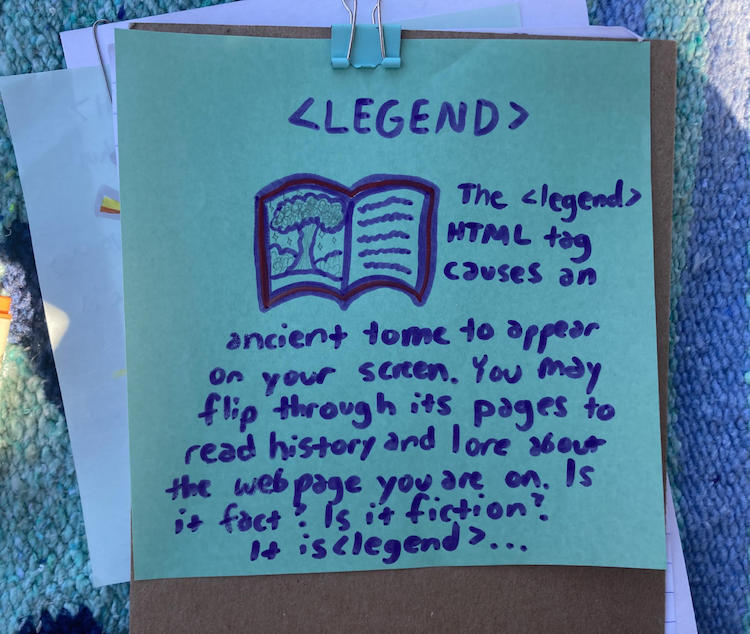 <LEGEND>
The <legend>
HTML tag
causes an
ancient tome to appear
on your screen. You may
flip through its pages to
read history and lore about
the webpage you are on. Is
it fact? Is it fiction?
It is <legend>...